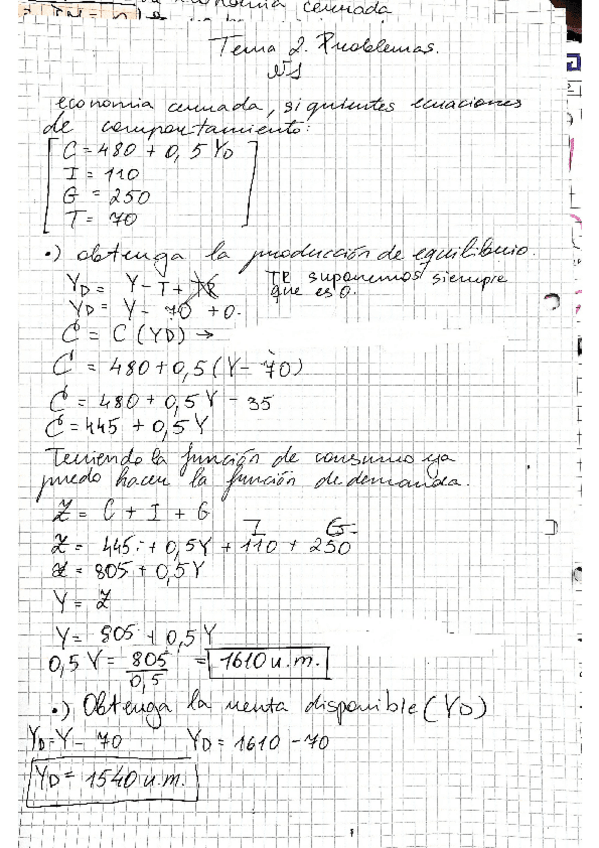 economia cerrada
Tema 2. Problemas.
Nº1
economia cerrada, siguientes ecuaciones
de comportamiento:
C = 480 + 0,5 YD
I = 110
G = 250
T = 70
•) obtenga la producción de equilibrio.
YD = Y - T + TR TR suponemos siempre
que es 0.
YD = Y - 70 + 0.
C = C (YD) →
C = 480 + 0,5 (Y - 70)
C = 480 + 0,5 Y - 35
C = 445 + 0,5 Y
Teniendo la función de consumo ya
puedo hacer la función de demanda.
Z = C + I + G
I G
Z = 445 + 0,5Y + 110 + 250
Z = 805 + 0,5Y
Y = Z
Y = 805 + 0,5 Y
0,5 Y = 805/0,5 = 1610 u.m.
•) Obtenga la renta disponible (YD)
YD = Y - 70 YD = 1610 - 70
YD = 1540 u.m.